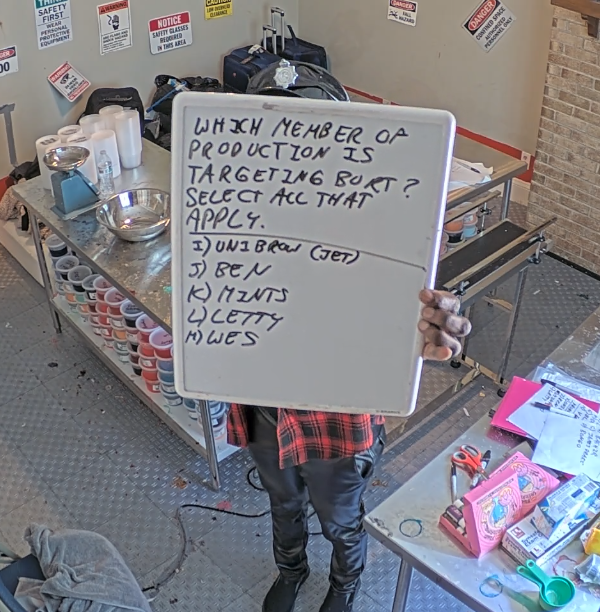 THINK
SAFETY
FIRST
WEAR
PERSONAL
PROTECTIVE
EQUIPMENT
DANGER
NOTICE
SAFETY GLASSES
REQUIRED
IN THIS AREA
CAUTION
DANGER
DANGER
CONFINED SPACE
AUTHORIZED
PERSONNEL
ONLY
DANGER
WHICH MEMBER OF
PRODUCTION IS
TARGETING BURT?
SELECT ALL THAT
APPLY.
I) UNIBROW (JET)
J) BEN
K) MINTS
L) LETTY
M) WES